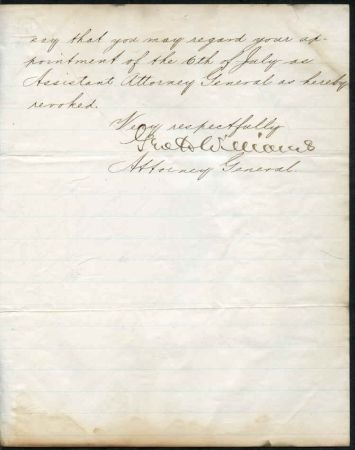 say that you may regard your ap-
pointment of the 6th of July as
Assistant Attorney General as hereby
revoked.
Very respectfully
Geo H Williams
Attorney General.